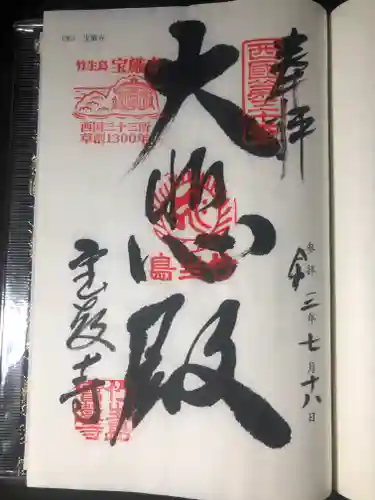 奉拝
西國第三十番
参拝
令 三年七月十八日
大悲殿
竹生島
宝厳寺
竹生島 宝厳寺
西国三十三所
草創1300年